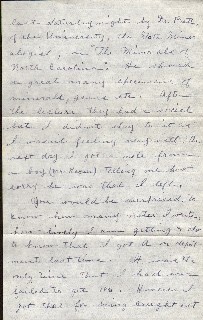 last Saturday night by Dr. Pratt
of the University, the State Miner-
alogist, on "The Minerals of
North Carolina". He showed
a great many specimens of
minerals, gems etc. After
the lecture they had a social
but I didn't stay to it as
I wasn't feeling very well. The
next day I got a note from
a boy telling me how
sorry he was that I left.
You would be surprised to
know how many notes I write.
lovely I am getting
to know that I got in depart-
ment last time. It was the
only time that I had ever
failed to get 100. However I
got that for being caught out